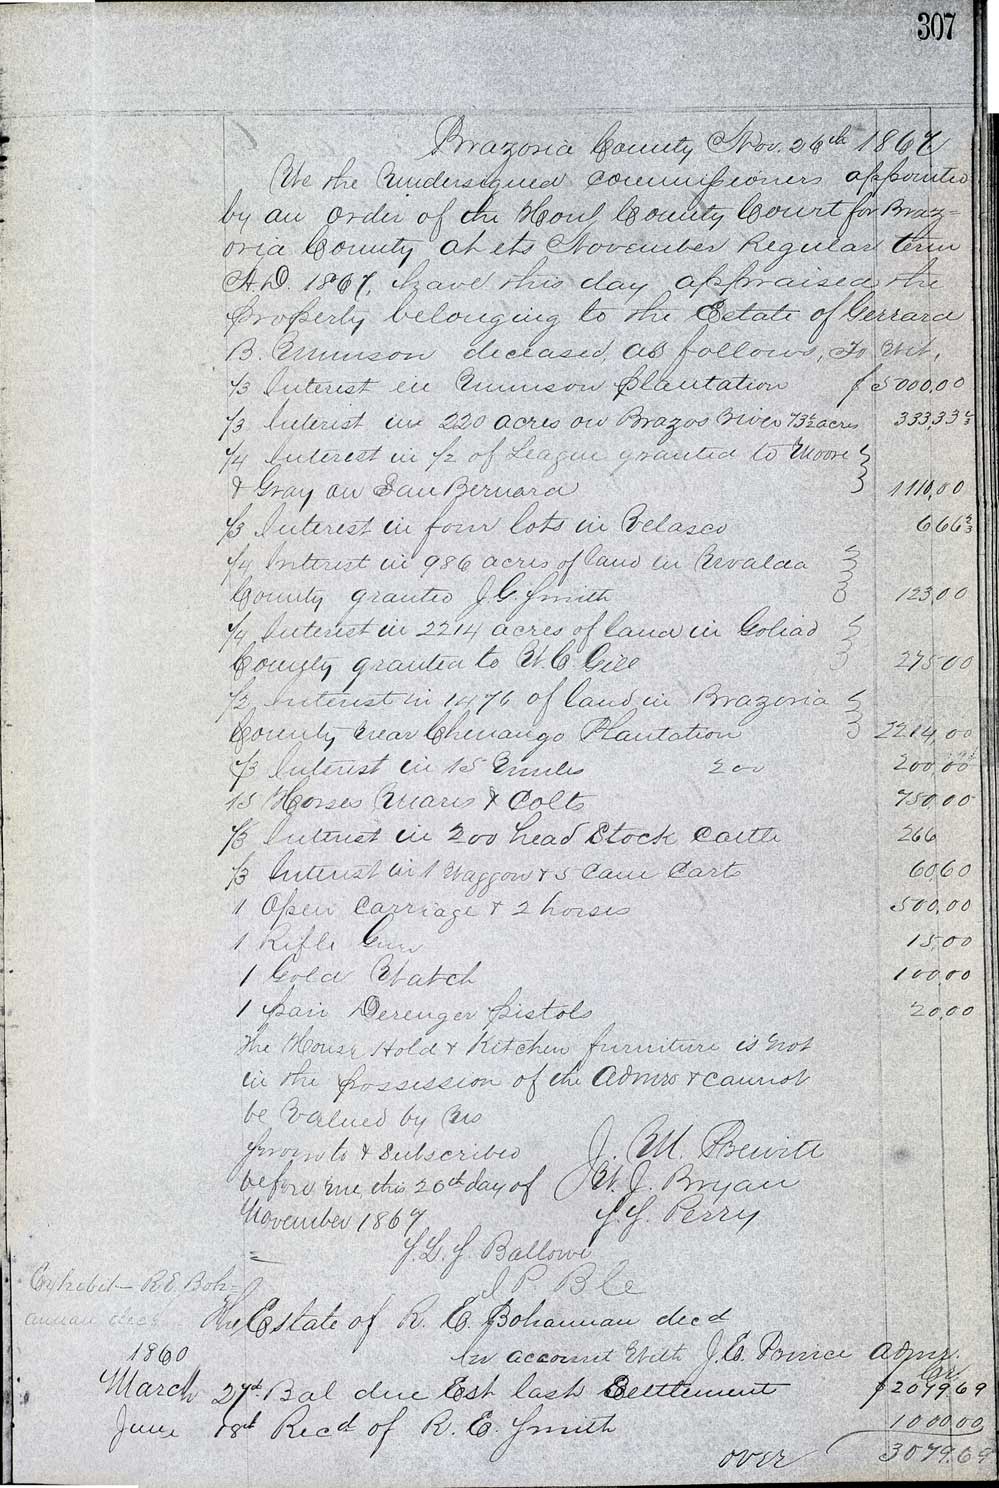 307
Brazoria County Nov. 26th 1867
We the Undersigned Commissioners appointed
by an Order of the Honl County Court for Braz=
oria County at its November Regular term
A.D. 1867, have this day appraised the
property belonging to the Estate of Gerrard
B. Munson deceased, as follows, To Wit,
1/3 Interest in Munson plantation $5000,00
1/3 Interest in 220 acres on Brazos River 73 1/3 acres 333,33 1/3
1/4 Interest in 1/2 of League granted to Moore
& Gray on San Bernard 1110,00
1/3 Interest in four lots in Velasco 6 66 2/3
1/4 Interest in 986 acres of land in Uvalda
County granted J.G. Smith 123,00
1/4 Interest in 2214 acres of land in Goliad
County granted to W.C. Gill 275 00
1/2 Interest in 1476 of land in Brazoria
County near Chenango Plantation 2214,00
1/3 Interest in 15 Mules 200 200,00
15 Horses Mares & Colts 750,00
1/3 Interest in 200 head Stock Cattle 266
1/3 Interest in 1 Waggon & 5 Cane Carts 60,60
1 Open Carriage & 2 horses 500,00
1 Rifle Gun 15,00
1 Gold Watch 100,00
1 pair Derenger pistols 20,00
The House Hold & Kitchen furniture is not
in the possession of the Admr & cannot
be Valued by Us
Sworn to & Subscribed J. M. Prewitt
before me, this 26th day of W. J. Bryan
November 1867 S. S. Perry
S. L. S. Ballowe
Exhibit R E Boh=
annan decd The Estate of R. E. Bohannan decd
1860 In account With J. E. Prince Admr.
Cr
March 27d Bal due Est last Settlement $2079.69
June 18d Recd of R. E. Smith 1000 00
over 3079.69